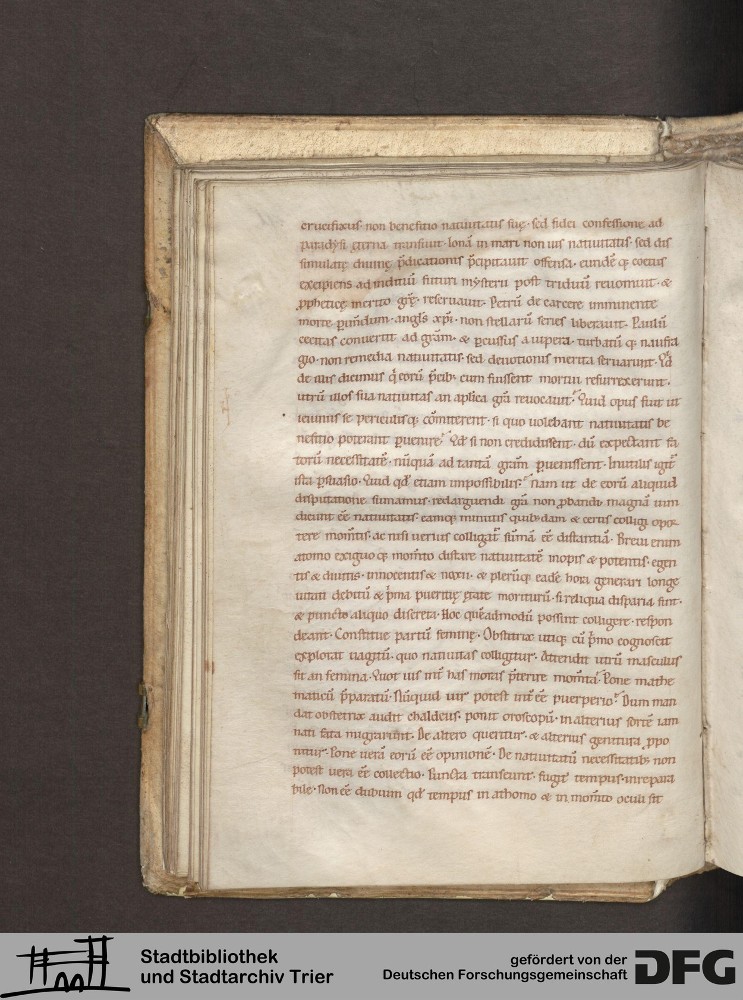 crucifixus non benefitio natiuitatis suę · sed fidei confessione ad
paradysi eterna transiuit · Ionā in mari non uis natiuitatis · sed dis
simulatę diuinę p̄dicationis p̄cipitauit offensa · eundē q; coetus
excipiens ad inditiū futuri mysterii post triduū reuomuit · &
ꝓpheticę merito gr̄ę · reseruauit · Petrū de carcere imminente
morte p̄imēdum · angl̄s xp̄i · non stellarū series liberauit · Paulū
cecitas conuertit ad gr̄am · & p̄cussus a uipera · turbatū q; naufra
gio · non remedia natiuitatis · sed deuotionis merita seruarunt · Qd̄
de illis dicimus q̄ eorū p̄cib; cum fuissent mortui resurrexerunt ·
utrū illos sua natiuitas an aplīca gr̄a reuocauit? Quid opus fuit ut
ieiuniis se periculisq; cōmitterent · si quo uolebant natiuitatis be
nefitio poterant p̄uenire? Qd̄ si non credidissent · dū expectant fa
torū necessitatē · nūquā ad tantā gr̄am p̄uenissent · Inutilis igit̄
ista p̄suasio · Quid qd̄ etiam impossibilis? nam ut de eorū aliquid
disputatione sumamus · redarguendi gr̄a non ꝓbandi · magnā uim
dicunt eē natiuitatis · eamq; minutis quib;dam & certis colligi opor
tere momtīs · ac nisi uerius colligat̄ · sūmā eē distantiā · Breui enim
atomo exiguo q; momīto distare natiuitatē inopis & potentis · egen
tis & diuitis · innocentis & noxii · & plerūq; eadē hora generari longę
uitati debitū & p̄ma pueritię ętate moriturū · si reliqua disparia sint ·
& puncto aliquo discreta · Hoc quēadmodū possint colligere · respon
deant · Constitue partū feminę · Obstetrix utiq; cū p̄mo cognoscit
explorat uagitū · quo natiuitas colligitur · Attendit utrū masculus
sit an femina · Quot uis int̄ has moras p̄terire momtā? Pone mathe
maticū p̄paratū · Nūquid uir potest int̄ eē puerperio? Dum man
dat obstetrix audit chaldeus · ponit oroscopū · in alterius sortē iam
nati fata migrarunt · De altero queritur · & alterius genitura ꝓpo
nitur · Pone uerā eorū eē opinionē · De natiuitatū necessitatib; non
potest uera eē collectio · Puncta transeunt · fugit tempus · inrepara
bile · Non eē dubium qd̄ tempus in athomo & in momīto oculi sit
Stadtbibliothek
und Stadtarchiv Trier
gefördert von der
Deutschen Forschungsgemeinschaft
DFG